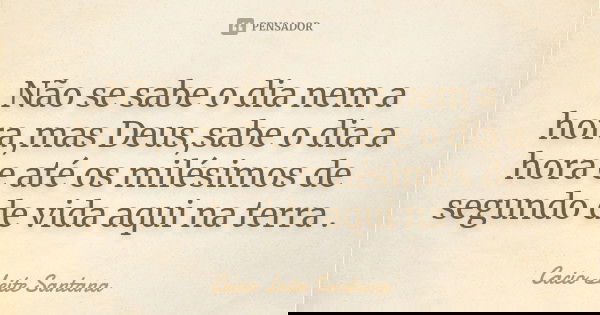 PENSADOR
Não se sabe o dia nem a
hora,mas Deus,sabe o dia a
hora e até os milésimos de
segundo de vida aqui na terra .
Cacio Leite Santana